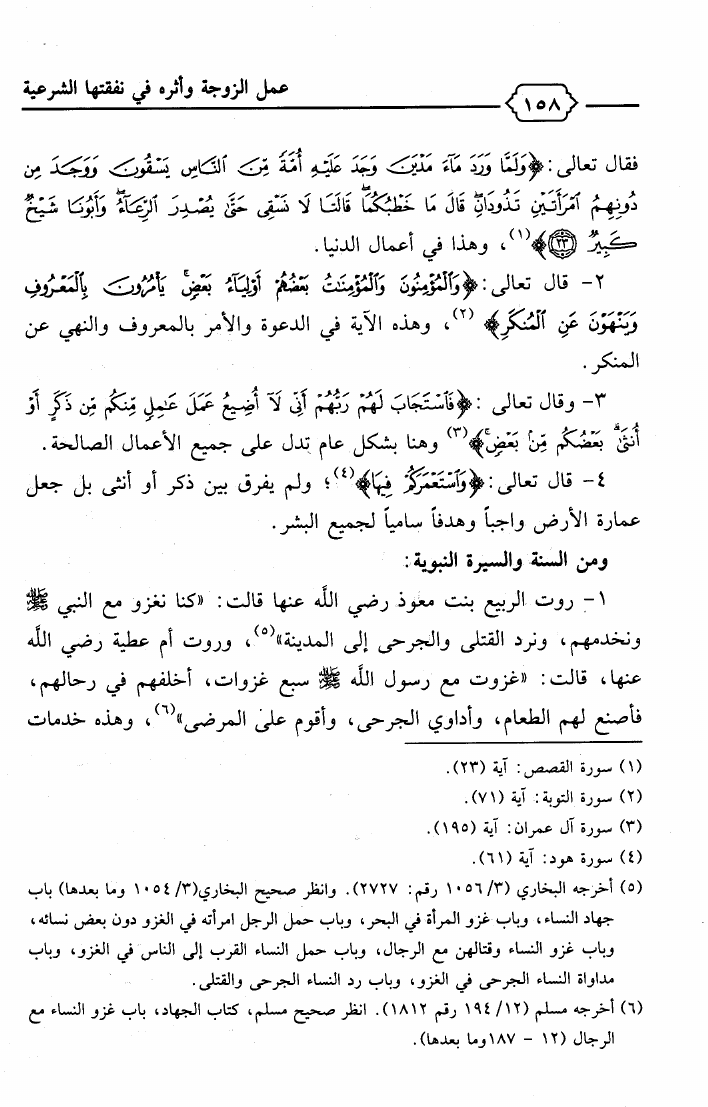 عمل الزوجة وأثره في نفقتها الشرعية
١٥٨
فقال تعالى: ﴿وَلَمَّا وَرَدَ مَآءَ مَدْيَنَ وَجَدَ عَلَيْهِ أُمَّةً مِّنَ ٱلنَّاسِ يَسْقُونَ وَوَجَدَ مِن
دُونِهِمُ ٱمْرَأَتَيْنِ تَذُودَانِۖ قَالَ مَا خَطْبُكُمَاۖ قَالَتَا لَا نَسْقِى حَتَّىٰ يُصْدِرَ ٱلرِّعَآءُۖ وَأَبُونَا شَيْخٌ
كَبِيرٌ ٢٣﴾(١)، وهذا في أعمال الدنيا.
٢- قال تعالى: ﴿وَٱلْمُؤْمِنُونَ وَٱلْمُؤْمِنَٰتُ بَعْضُهُمْ أَوْلِيَآءُ بَعْضٍۚ يَأْمُرُونَ بِٱلْمَعْرُوفِ
وَيَنْهَوْنَ عَنِ ٱلْمُنكَرِ﴾(٢)، وهذه الآية في الدعوة والأمر بالمعروف والنهي عن
المنكر.
٣- وقال تعالى: ﴿فَٱسْتَجَابَ لَهُمْ رَبُّهُمْ أَنِّى لَآ أُضِيعُ عَمَلَ عَٰمِلٍ مِّنكُم مِّن ذَكَرٍ أَوْ
أُنثَىٰۖ بَعْضُكُم مِّنۢ بَعْضٍۖ﴾(٣) وهنا بشكل عام تدل على جميع الأعمال الصالحة.
٤- قال تعالى: ﴿وَٱسْتَعْمَرَكُمْ فِيهَا﴾(٤)؛ ولم يفرق بين ذكر أو أنثى بل جعل
عمارة الأرض واجباً وهدفاً سامياً لجميع البشر.
ومن السنة والسيرة النبوية:
١- روت الربيع بنت معوذ رضي الله عنها قالت: «كنا نغزو مع النبي ﷺ
ونخدمهم، ونرد القتلى والجرحى إلى المدينة»(٥)، وروت أم عطية رضي الله
عنها، قالت: «غزوت مع رسول الله ﷺ سبع غزوات، أخلفهم في رحالهم،
فأصنع لهم الطعام، وأداوي الجرحى، وأقوم على المرضى»(٦)، وهذه خدمات
(١) سورة القصص: آية (٢٣).
(٢) سورة التوبة: آية (٧١).
(٣) سورة آل عمران: آية (١٩٥).
(٤) سورة هود: آية (٦١).
(٥) أخرجه البخاري (٣/ ١٠٥٦ رقم: ٢٧٢٧). وانظر صحيح البخاري(٣/ ١٠٥٤ وما بعدها) باب
جهاد النساء، وباب غزو المرأة في البحر، وباب حمل الرجل امرأته في الغزو دون بعض نسائه،
وباب غزو النساء وقتالهن مع الرجال، وباب حمل النساء القرب إلى الناس في الغزو، وباب
مداواة النساء الجرحى في الغزو، وباب رد النساء الجرحى والقتلى.
(٦) أخرجه مسلم (١٢/ ١٩٤ رقم ١٨١٢). انظر صحيح مسلم، كتاب الجهاد، باب غزو النساء مع
الرجال (١٢ - ١٨٧وما بعدها).